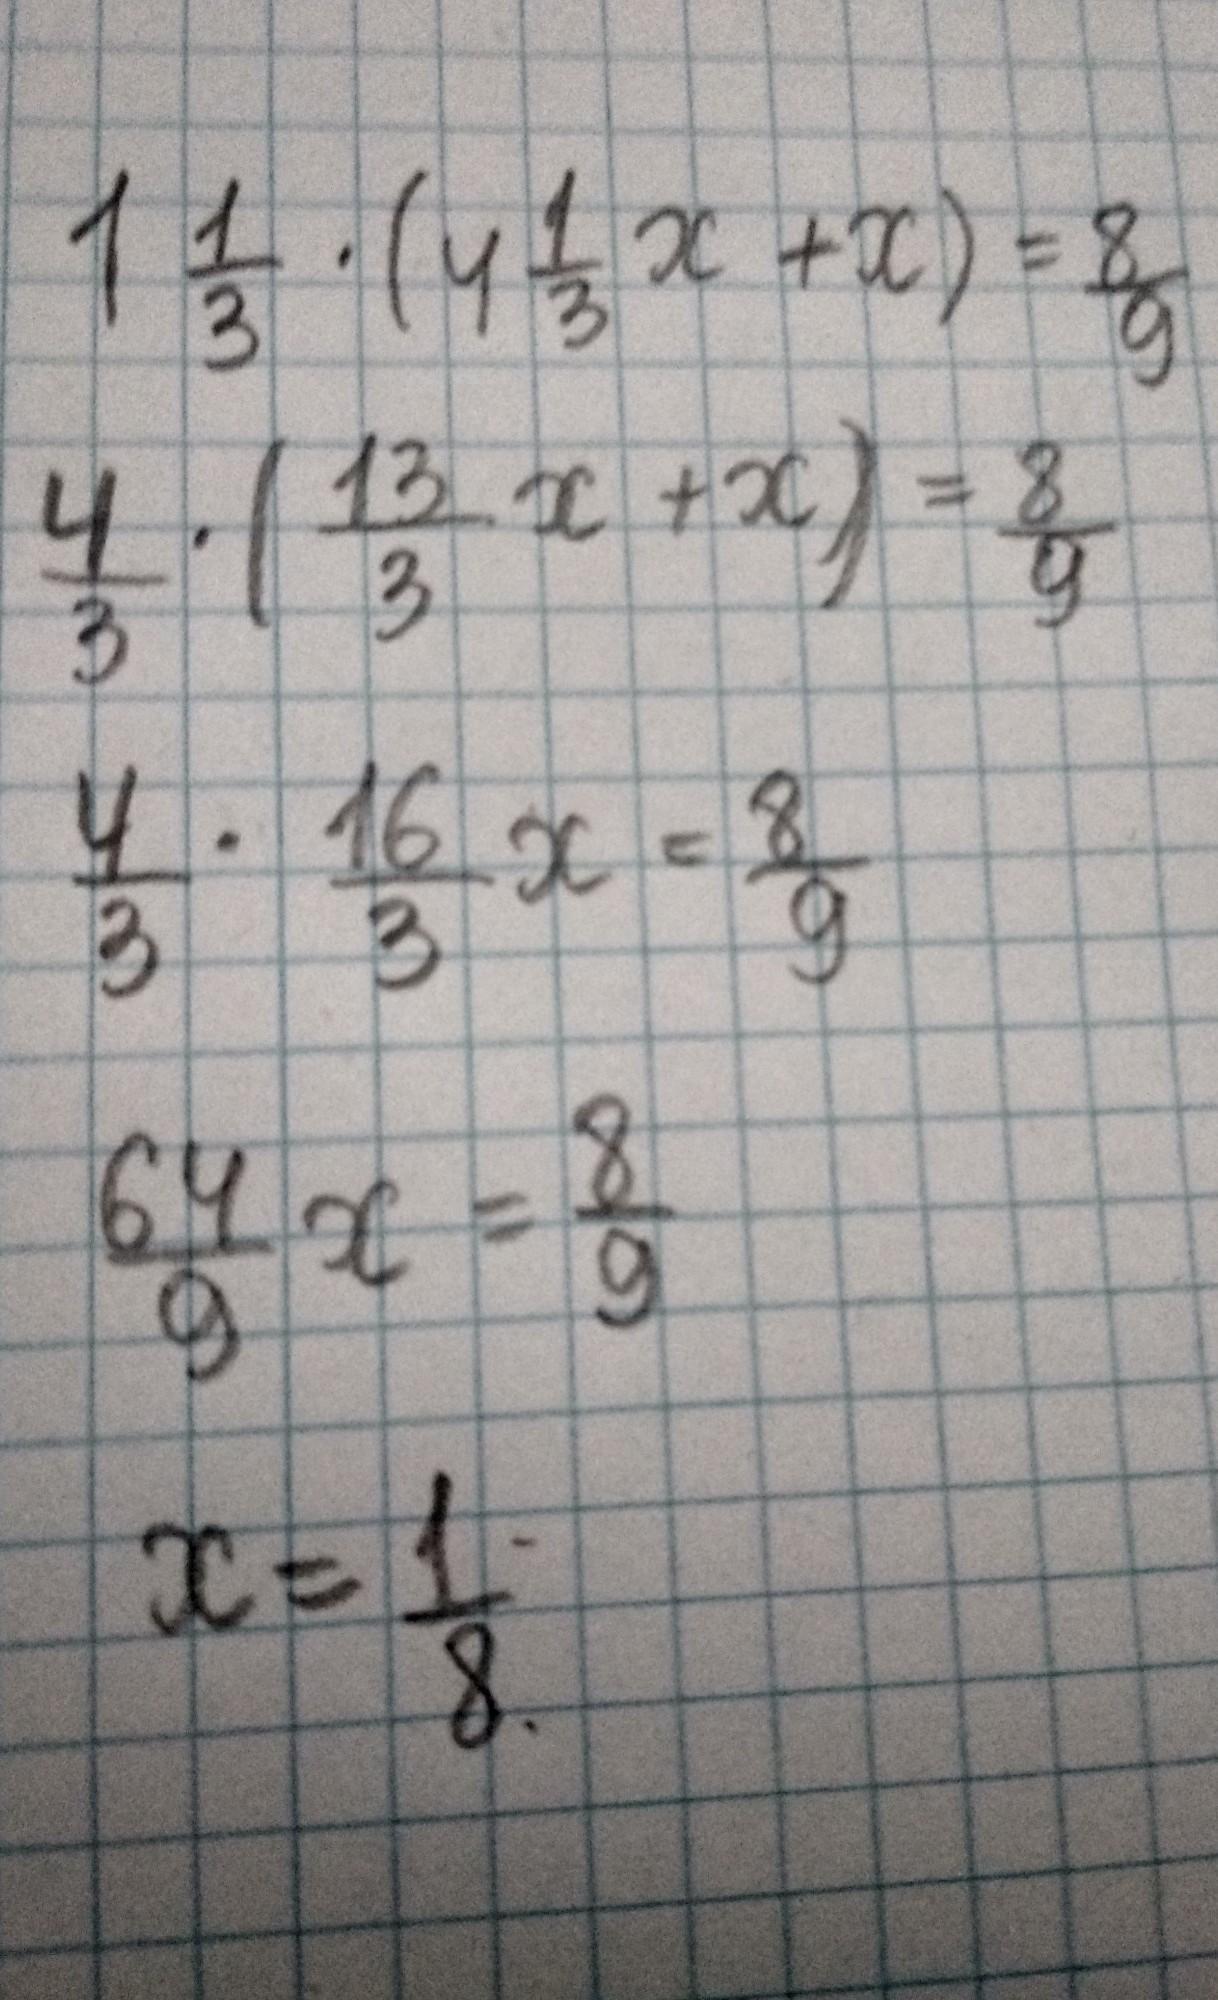 1 1/3 · (4 1/3 x + x) = 8/9
4/3 · (13/3 x + x) = 8/9
4/3 · 16/3 x = 8/9
64/9 x = 8/9
x = 1/8.